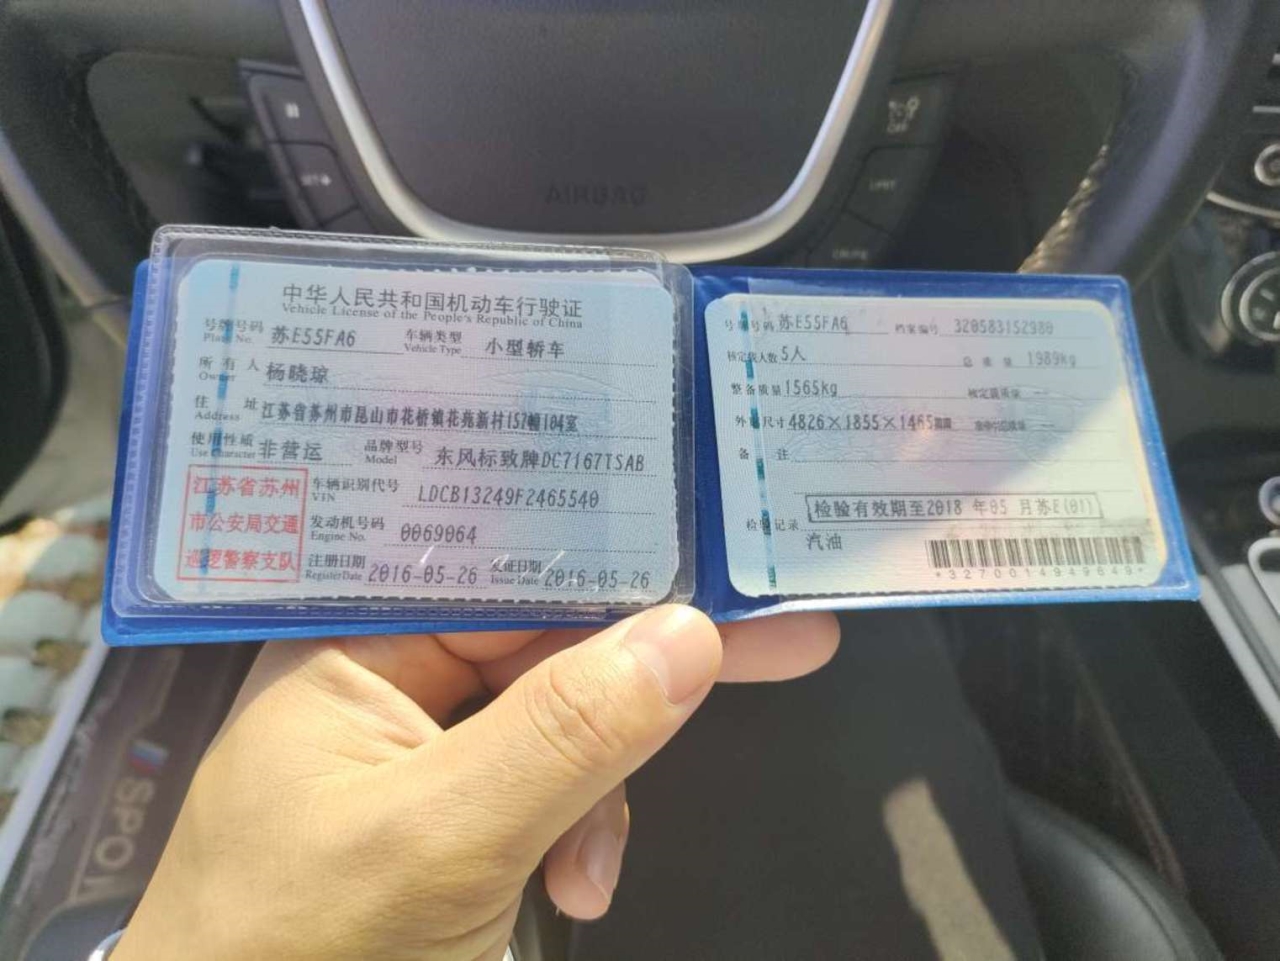 中华人民共和国机动车行驶证
Vehicle License of the People's Republic of China
号牌号码 苏E55FA6 车辆类型 小型轿车
Plate No. Vehicle Type
所有人 杨晓琼
Owner
住址 江苏省苏州市昆山市花桥镇花苑新村157幢104室
Address
使用性质 非营运 品牌型号 东风标致牌DC7167TSAB
Use Character Model
江苏省苏州
市公安局交通
巡逻警察支队
车辆识别代号 LDCB13249F2465540
VIN
发动机号码 0069064
Engine No.
注册日期 2016-05-26 发证日期 2016-05-26
Register Date Issue Date
号牌号码 苏E55FA6 档案编号 320583152980
核定载人数 5人 总质量 1989kg
整备质量 1565kg 核定载质量 --
外廓尺寸 4826×1855×1465mm --
备注
检验记录 检验有效期至2018年05月苏E(01)
汽油
*3270014949649*
AIRBAG
SET+
OFF
LIMIT
CRUISE
SPO